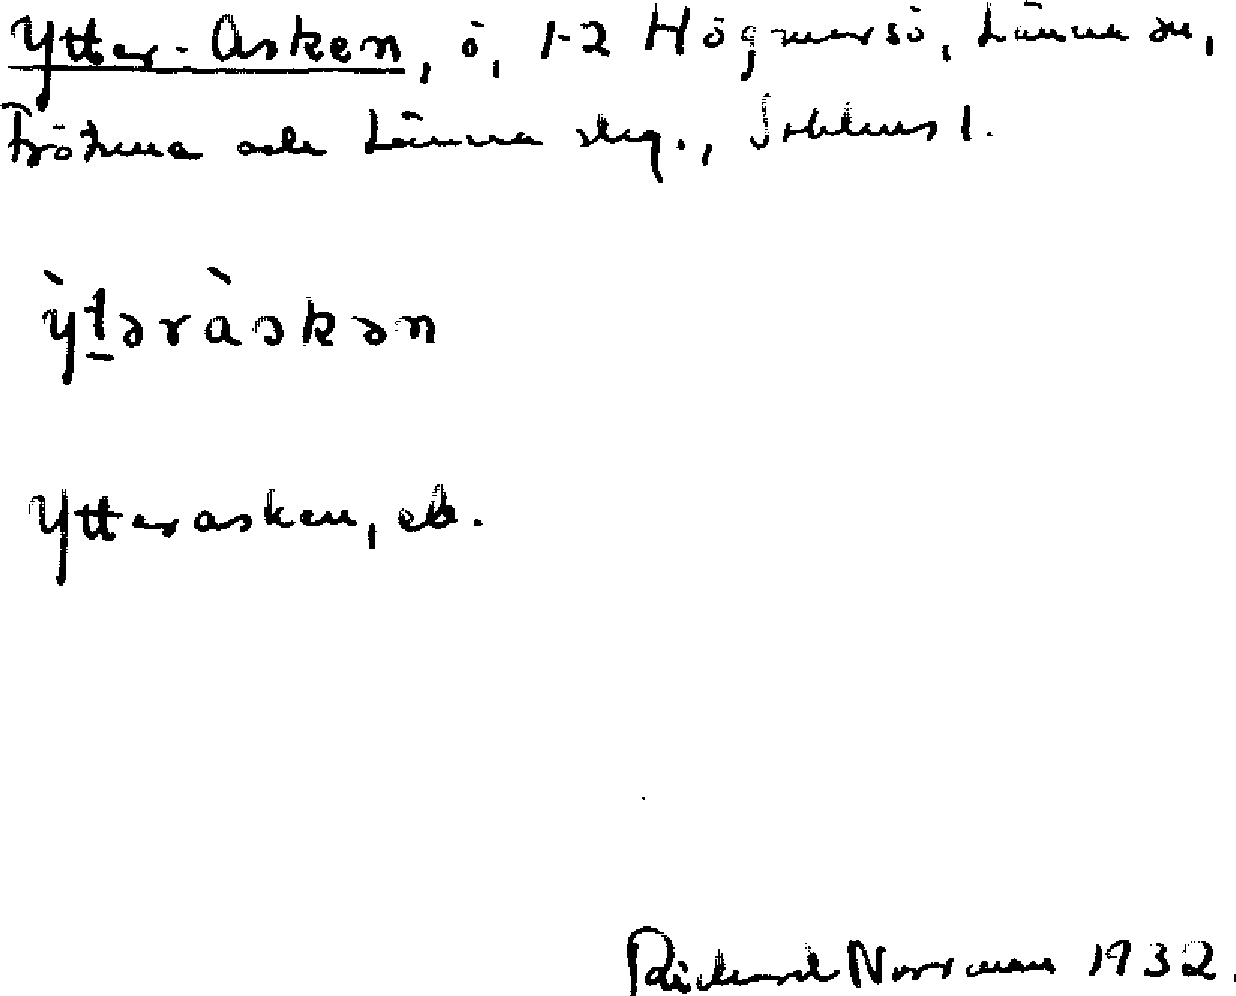 Ytter-Asken, ö, 1-2 Högmarsö, Länna sn,
Frötuna och Länna skg., Sthlms l.
ỳt̠əràskən
Ytterasken, eb.
Rickard Norrman 1932.